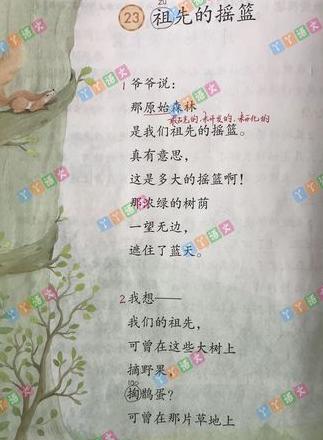 zǔ
23 祖先的摇篮
1 爷爷说：
那原始森林
最古老的、未开发的、未开化的
是我们祖先的摇篮。
真有意思，
这是多大的摇篮啊！
那浓绿的树荫
一望无边，
遮住了蓝天。
2 我想——
我们的祖先，
可曾在这些大树上
摘野果，
掏鹊蛋？
可曾在那片草地上
丫丫语文